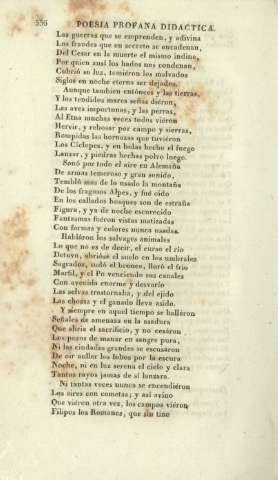 336 POESIA PROFANA DIDACTICA.
Las guerras que se emprenden, y adivina
Los fraudes que en secreto se encadenan,
Del Cesar en la muerte el mismo indino,
Por quien ansi los hados nos condenan,
Cubrió su luz, temiéron los malvados
Siglos en noche eterna ser dejados.
Aunque tambien entónces y las tierras,
Y los tendidos mares señas diéron,
Las aves importunas, y las perras,
Al Etna muchas veces todos viéron
Hervir, y rebosar por campo y sierras,
Rompidas las hornazas que tuviéron
Los Cíclopes, y en bolas hecho el fuego
Lanzar, y piedras hechas polvo luego.
Sonó por todo el aire en Alemaña
De armas temeroso y gran sonido,
Tembló mas de lo usado la montaña
De los fragosos Alpes, y fué oido
En los callados bosques son de estraña
Figura, y ya de noche escurecido
Fantasmas fuéron vistas matizadas
Con formas y colores nunca usadas.
Habláron los salvages animales
Lo que no es de decir, el curso el rio
Detuvo, abrióse el suelo en los umbrales
Sagrados, sudó el bronce, lloró el frio
Marfil, y el Po venciendo sus canales
Con avenida enorme y desvarío
Las selvas trastornaba, y del ejido
Las chozas y el ganado lleva asido.
Y siempre en aquel tiempo se halláron
Señales de amenaza en la asadura
Que abria el sacrificio, y no cesáron
Los pozos de manar en sangre pura,
Ni las ciudades grandes se escusaron
De oir aullar los lobos por la escura
Noche, ni en luz serena el cielo y clara
Tantos rayos jamas de sí lanzara.
Ni tantas veces nunca se encendiéron
Los aires con cometas; y asi avino
Que viéron otra vez, los campos viéron
Filipos los Romanos, que sin tino